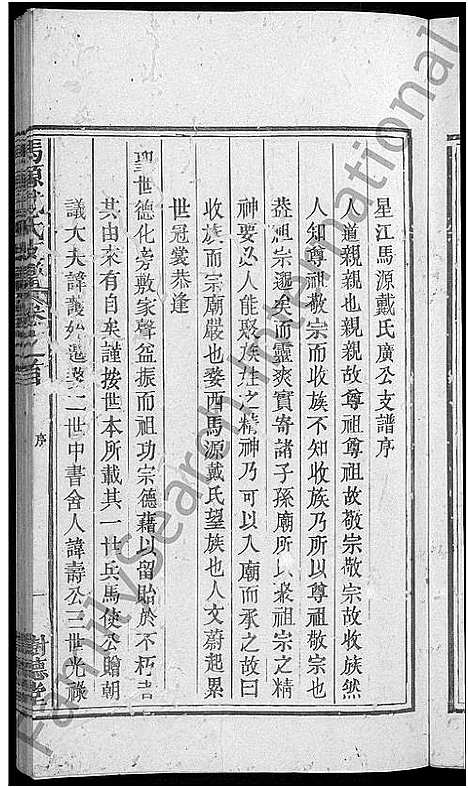 星江馬源戴氏廣公支譜序
人道親親也親親故尊祖尊祖故敬宗敬宗故收族然
人知尊祖敬宗而收族不知收族乃所以尊祖敬宗也
葢祖宗邈矣而靈爽實寄諸子孫廟所以聚祖宗之精
神要必人能聚族姓之精神乃可以入廟而承之故曰
收族而宗廟嚴也婺西馬源戴氏望族也人文蔚起累
世冠裳恭逢
聖世德化旁敷家聲益振而祖功宗德藉以留貽於不朽吉
其由來有自矣謹按世本所載其一世兵馬使公贈朝
議大夫諱護始遷婺二世中書舍人諱壽公三世光祿
馬源戴氏
序
一
樹德堂
FamilySearch International